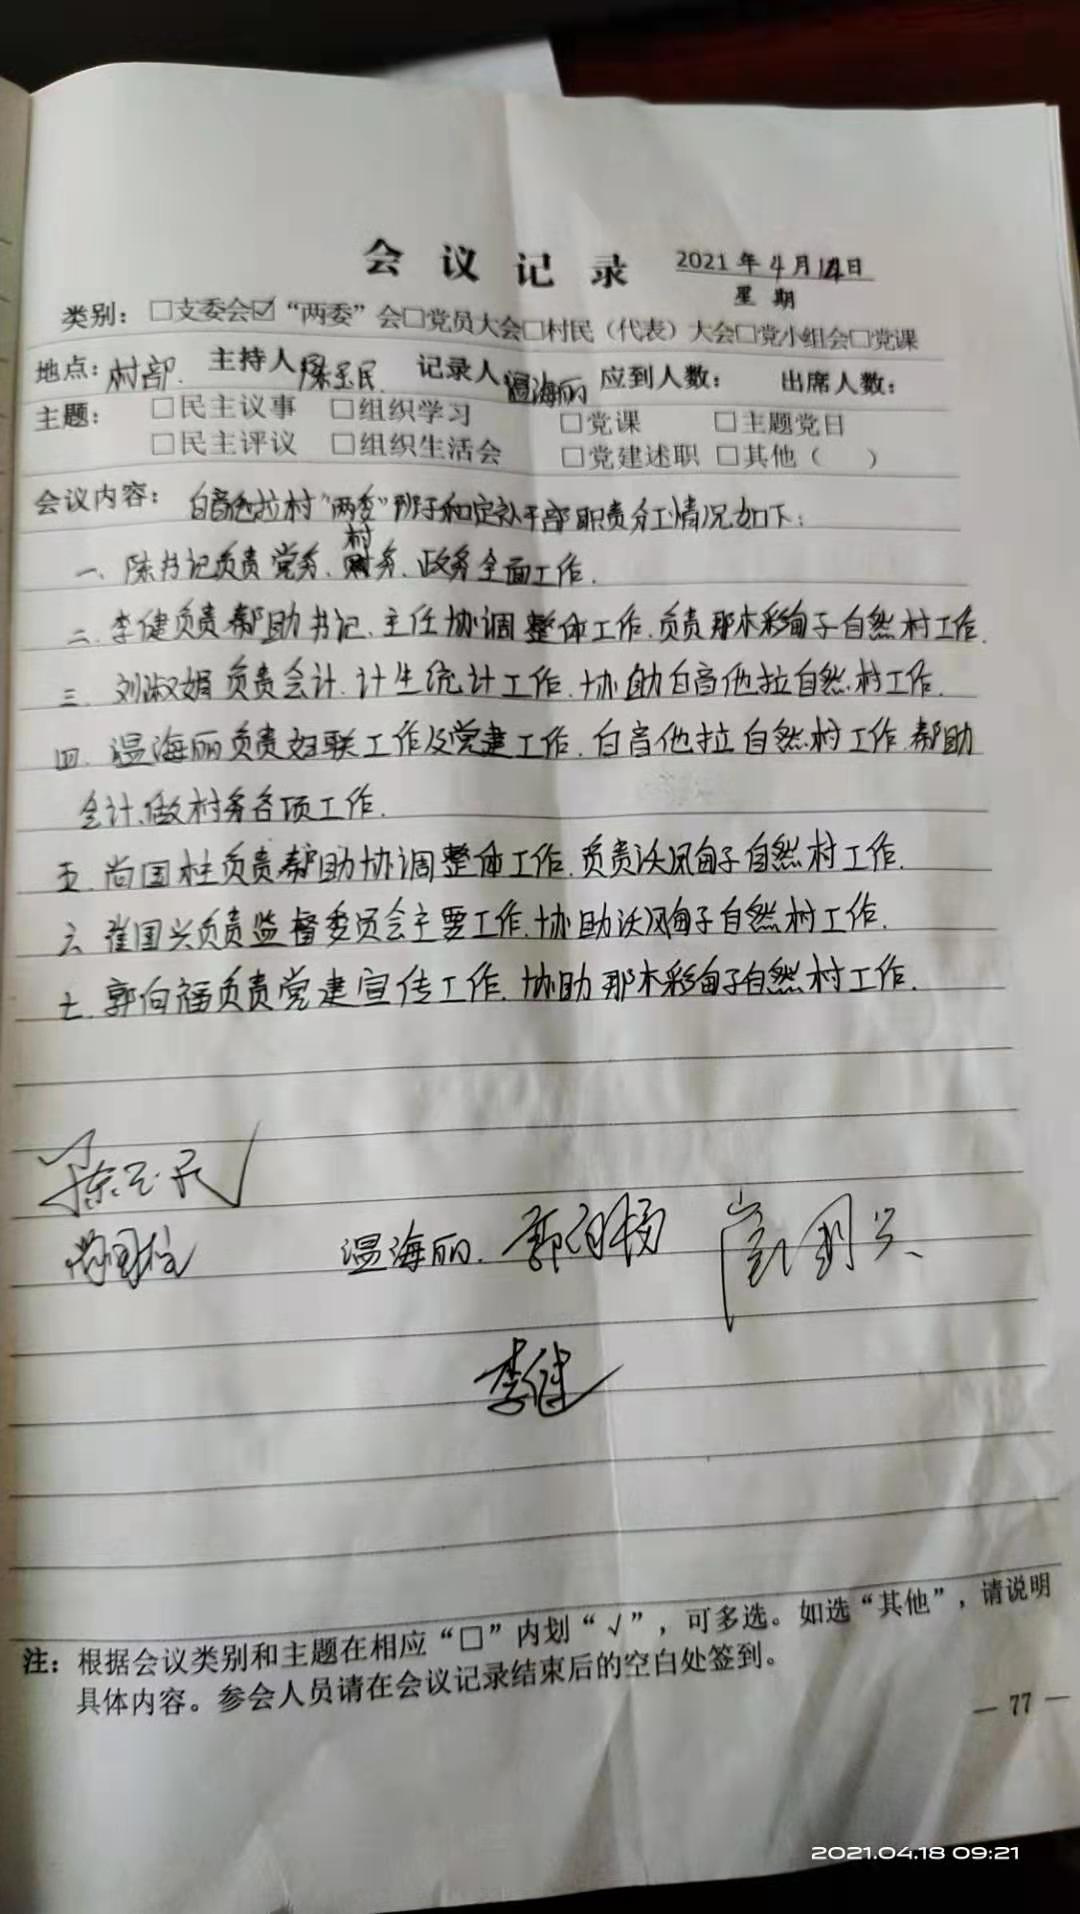 会议记录 2021年4月14日
星期
类别：□支委会☑“两委”会□党员大会□村民（代表）大会□党小组会□党课
地点：村部. 主持人陈玉民 记录人温海丽 应到人数： 出席人数：
主题： □民主议事 □组织学习 □党课 □主题党日
□民主评议 □组织生活会 □党建述职 □其他（ ）
会议内容：白音他拉村“两委”班子和定补干部职责分工情况如下：
村
一、陈书记负责党务、财务、政务全面工作.
二、李健负责帮助书记、主任协调整体工作.负责那木彩甸子自然村工作.
三、刘淑娟负责会计.计生统计工作.协助白音他拉自然村工作.
四、温海丽负责妇联工作及党建工作.白音他拉自然村工作.帮助
会计.做村务各项工作.
五.尚国柱负责帮助协调整体工作.负责沃风甸子自然村工作.
六.崔国兴负责监督委员会主要工作.协助沃风甸子自然村工作.
七.郭向福负责党建宣传工作.协助那木彩甸子自然村工作.
陈玉民
尚国柱 温海丽. 郭向福 崔国兴
李健
注：根据会议类别和主题在相应“□”内划“√”，可多选。如选“其他”，请说明
具体内容。参会人员请在会议记录结束后的空白处签到。
— 77 —
2021.04.18 09:21